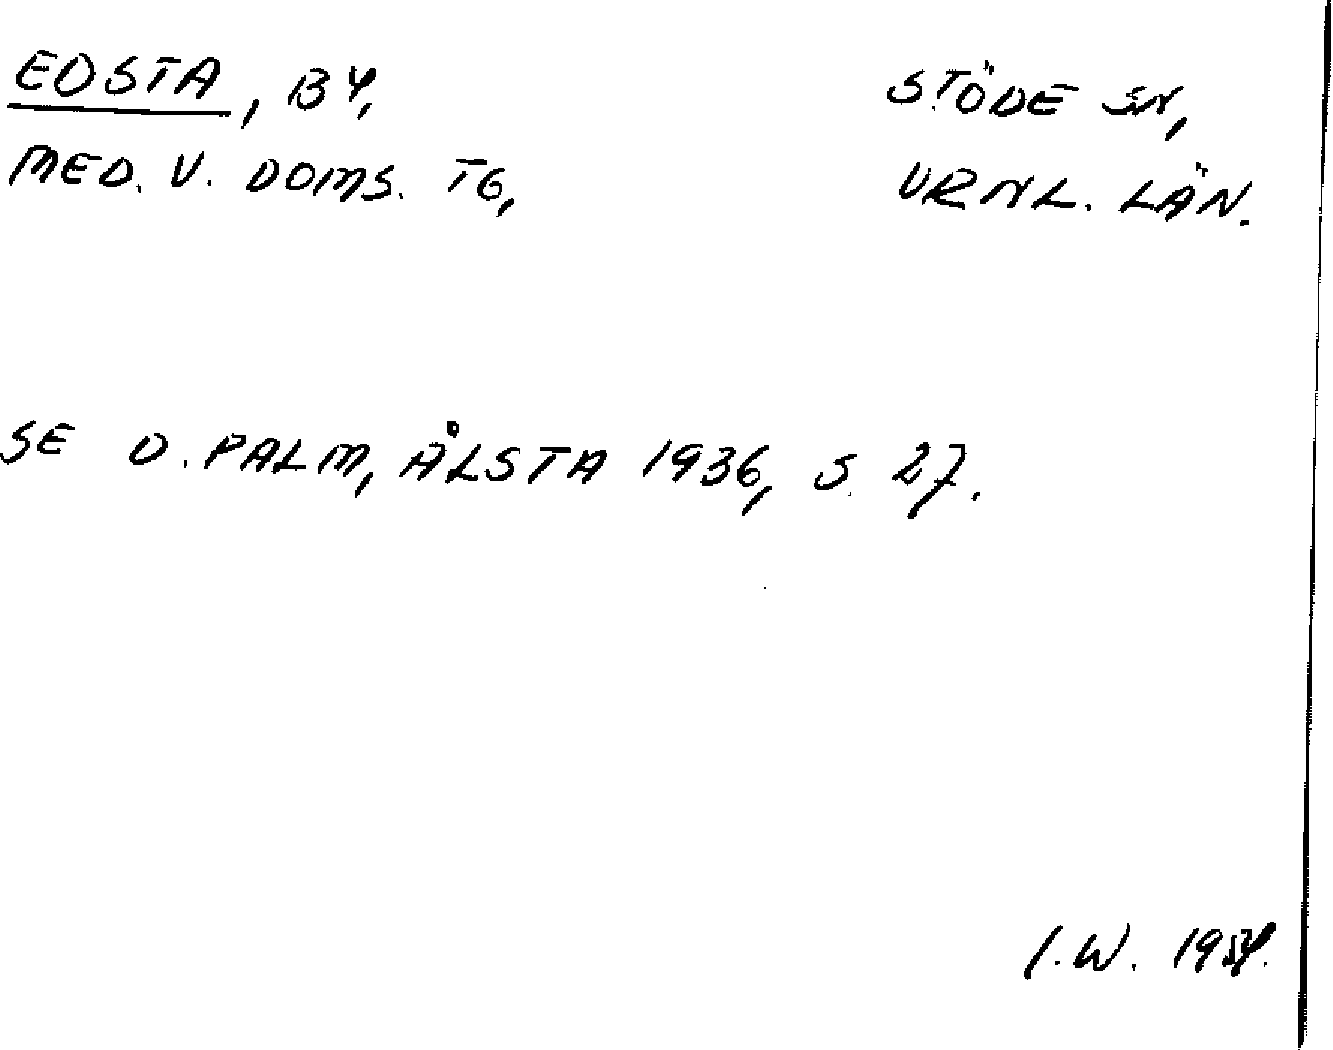 EDSTA, BY,
STÖDE SN,
MED. V. DOMS. TG,
VRNL. LÄN.
SE D. PALM, ÅLSTA 1936, S. 27.
I.W.